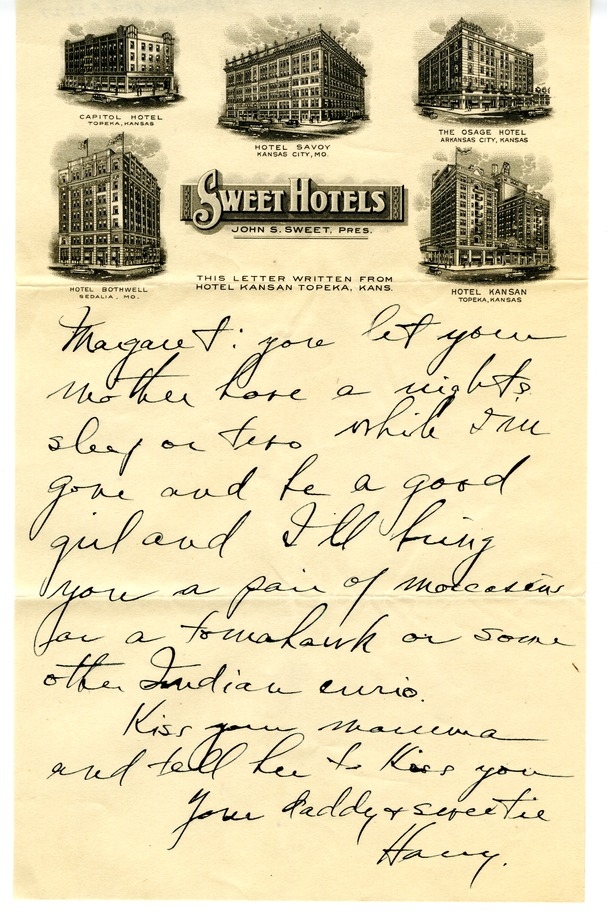 CAPITOL HOTEL
TOPEKA, KANSAS
HOTEL SAVOY
KANSAS CITY, MO.
THE OSAGE HOTEL
ARKANSAS CITY, KANSAS
SWEET HOTELS
JOHN S. SWEET, PRES.
HOTEL BOTHWELL
SEDALIA, MO.
THIS LETTER WRITTEN FROM
HOTEL KANSAN TOPEKA, KANS.
HOTEL KANSAN
TOPEKA, KANSAS
Margaret: you let your
mother have a night's
sleep or two while I'm
gone and be a good
girl and I'll bring
you a pair of moccasins
or a tomahawk or some
other Indian curio.
Kiss your mamma
and tell her to kiss you
Your daddy & sweetie
Harry.